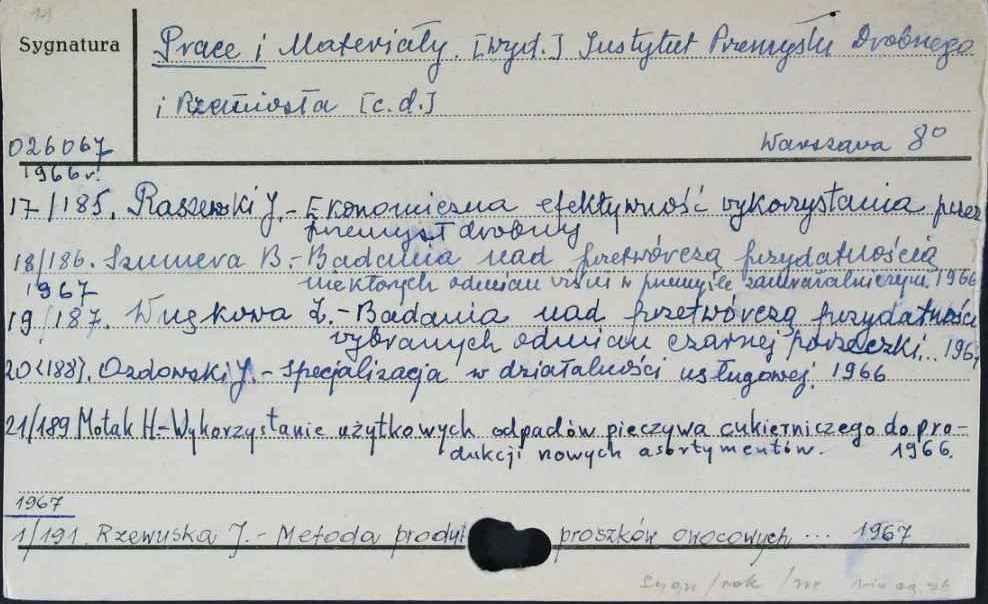 Sygnatura
Prace i Materiały. [wyd.] Instytut Przemysłu Drobnego
i Rzemiosła [c.d.]
026067
Warszawa 8°
1966r.
17/185. Raszewski J. - Ekonomiczna efektywność wykorzystania przez
przemysł drobny
18/186. Szumera B. - Badania nad przetwórczą przydatnością
niektórych odmian wiśni w przemyśle zamrażalniczym. 1966
1967
19/187. Wuskowa Z. - Badania nad przetwórczą przydatności
wybranych odmian czarnej porzeczki.. 196
20(188). Ozdowski J. - specjalizacja w działalności usługowej. 1966
21/189 Motak H. - Wykorzystanie użytkowych odpadów pieczywa cukierniczego do pro-
dukcji nowych asortymentów. 1966.
1967
1/191. Rzewuska J. - Metoda produk proszków owocowych ... 1967
Sygn / rok / nr